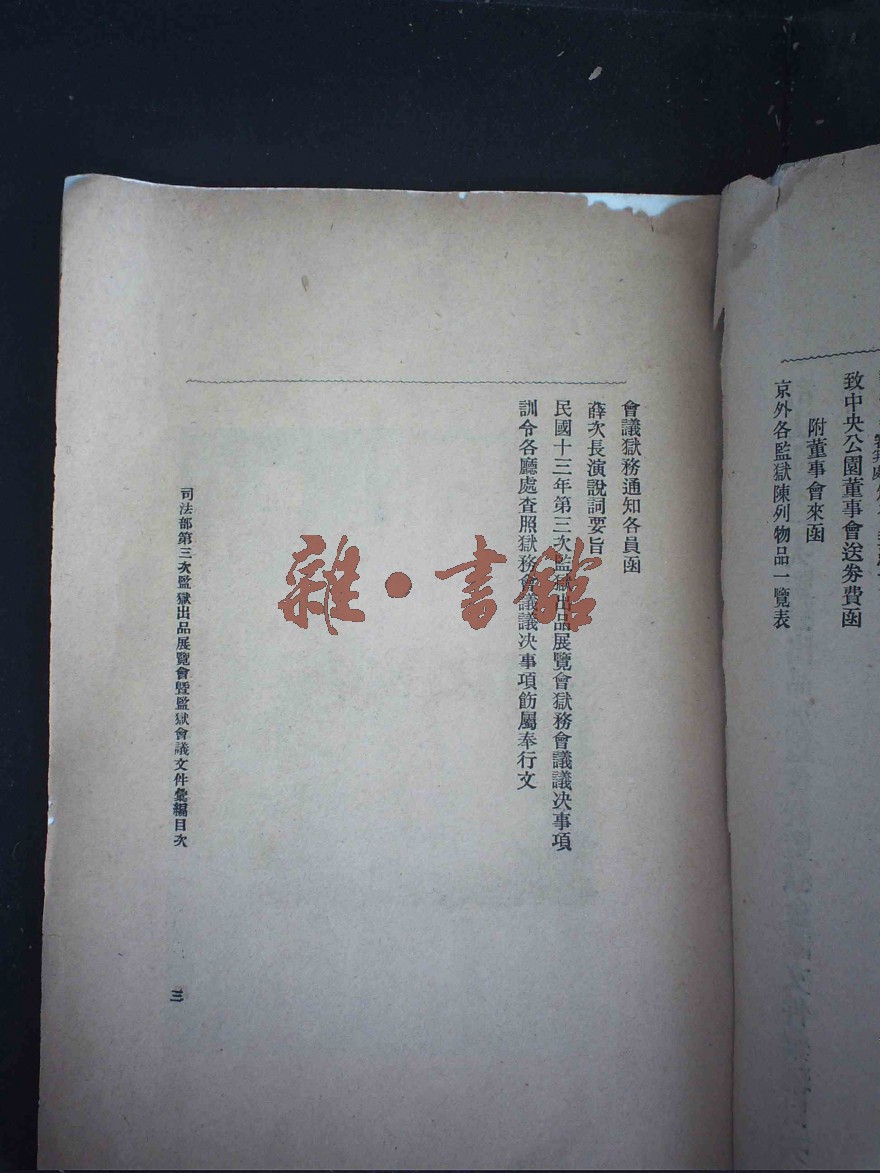 致中央公園董事會送券費函
附董事會來函
京外各監獄陳列物品一覽表
會議獄務通知各員函
薛次長演說詞要旨
民國十三年第三次監獄出品展覽會獄務會議議決事項
訓令各廳處查照獄務會議議決事項飭屬奉行文
司法部第三次監獄出品展覽會暨監獄會議文件彙編目次
三
雜·書館